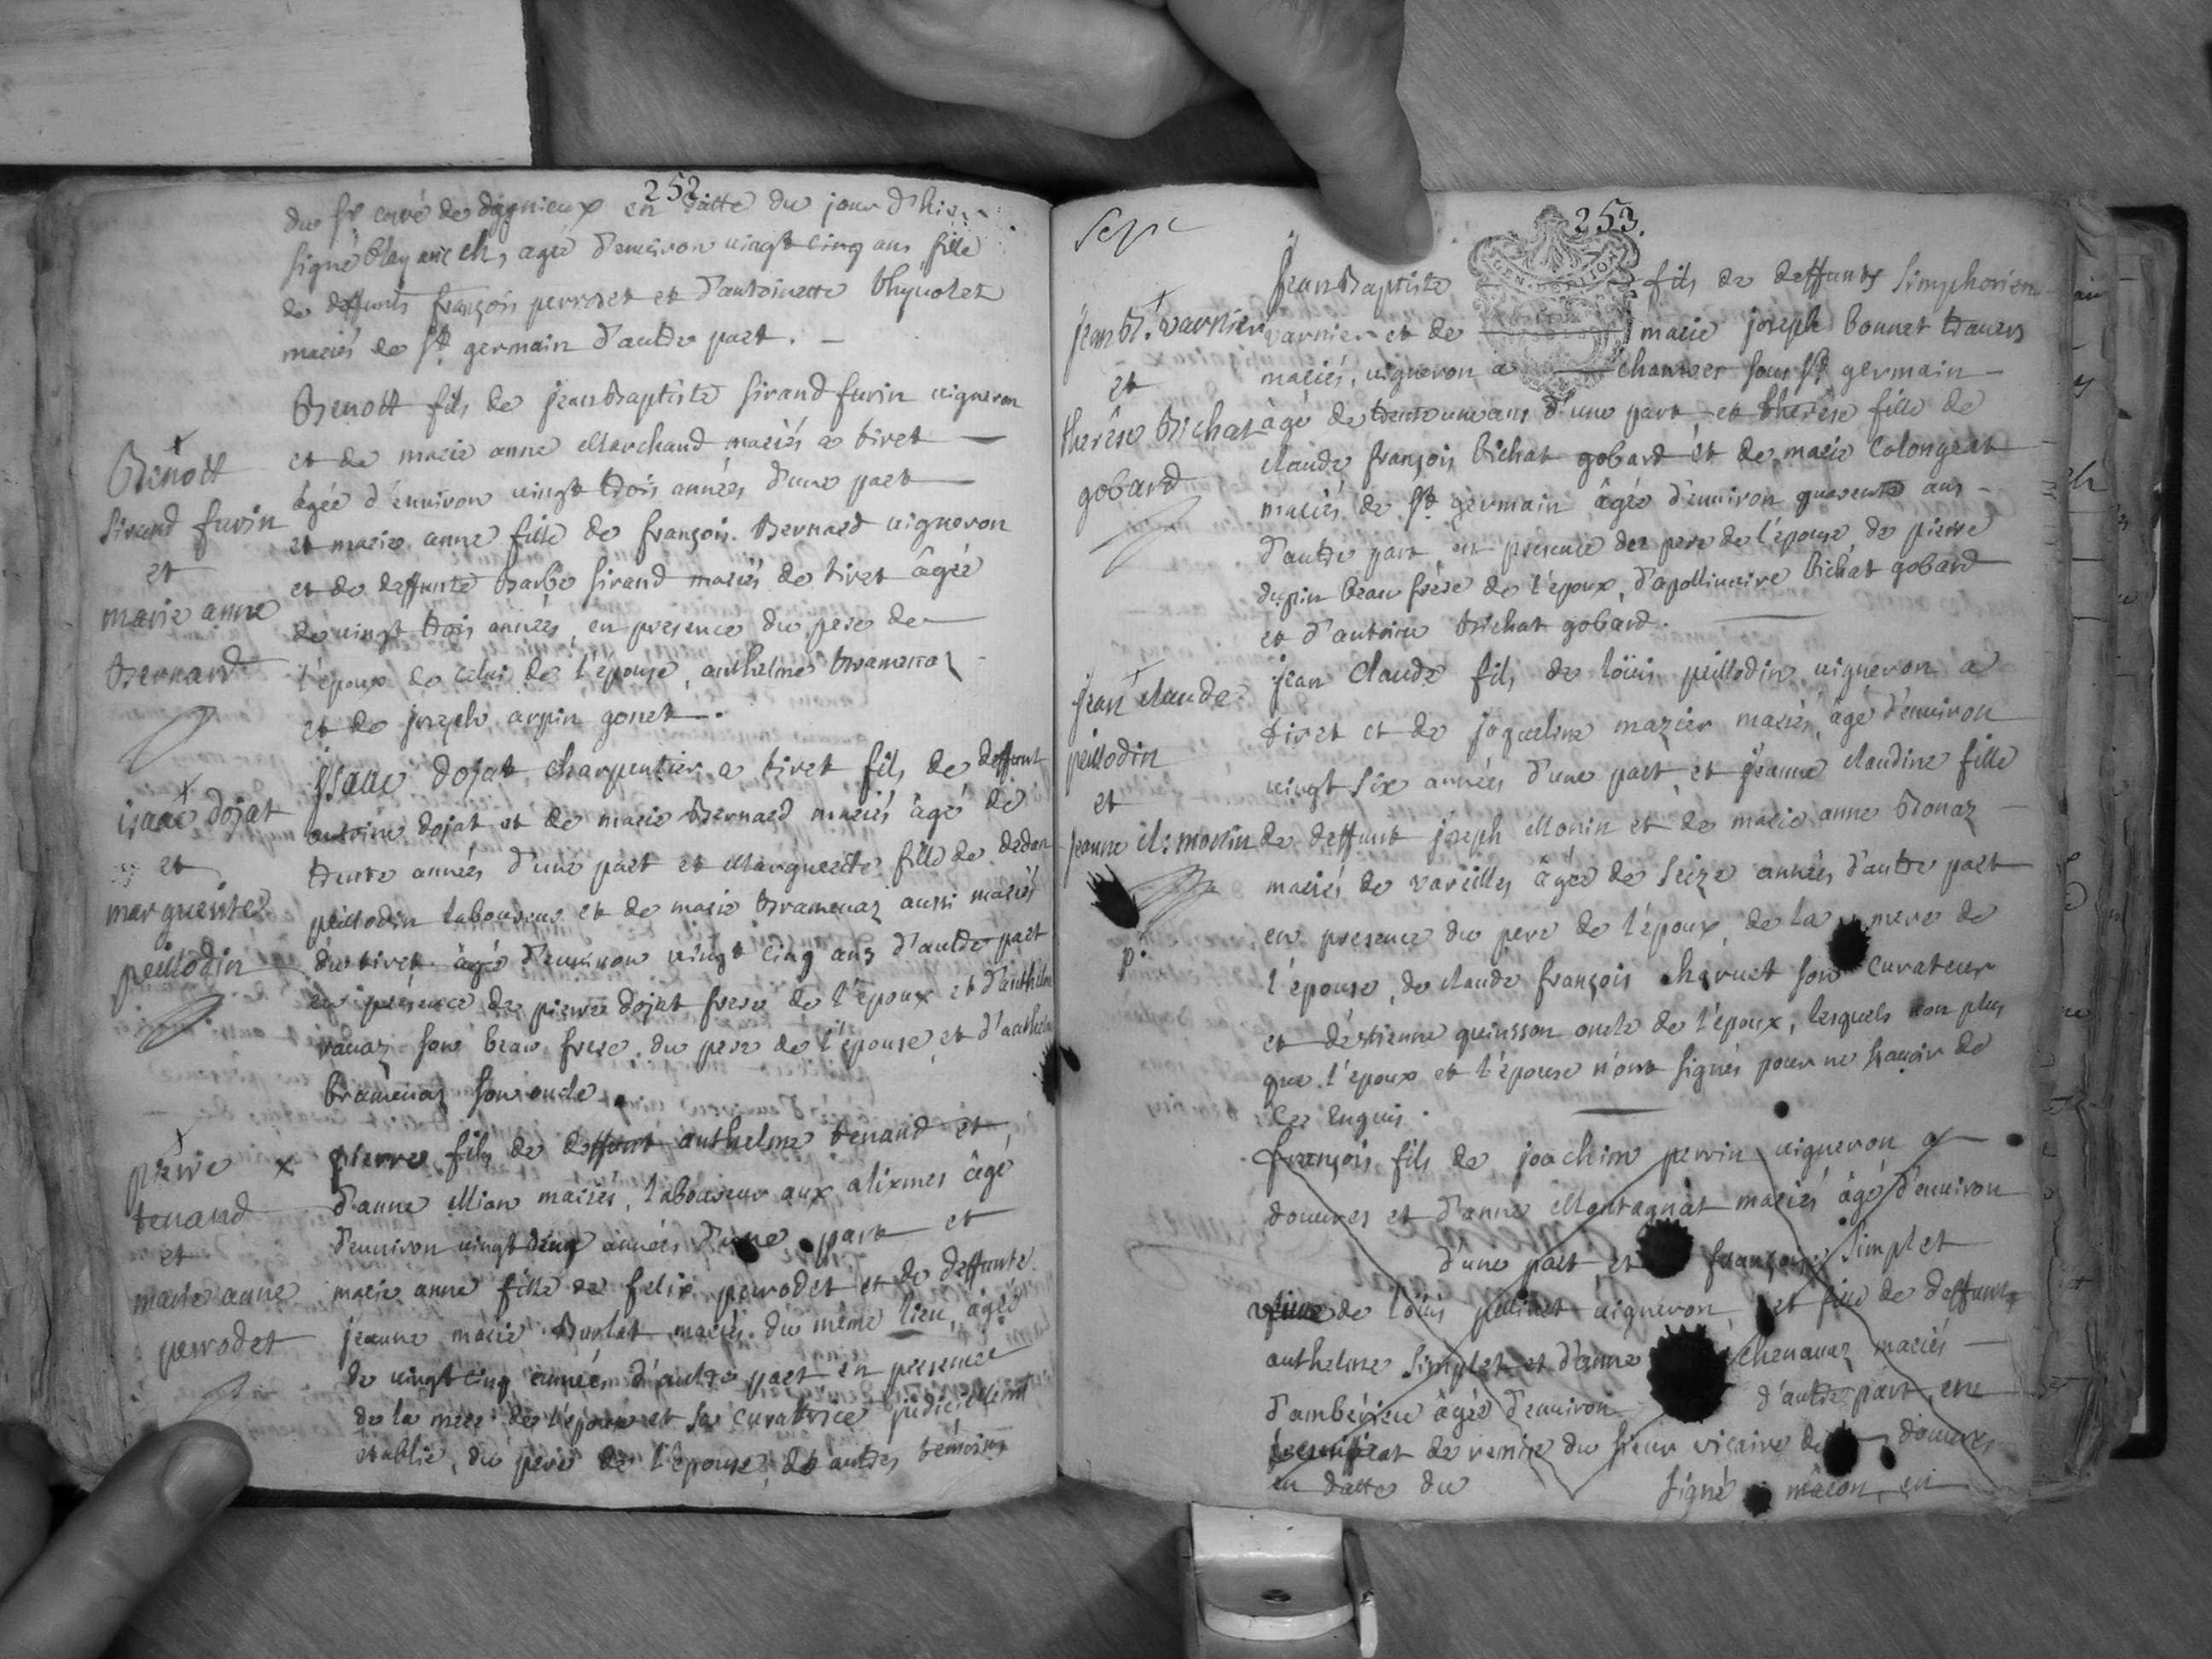 252
du sr curé de dagnieux en datte du jour d'hier
signé blay vic ch, agée d'environ vingt cinq ans fille
de deffunts françois perrodet et d'antoinette
mariés de st germain d'autre part.
Benoit
Sirand furin
et
marie anne
Bernard
Benoit fils de jean Baptiste Sirand furin vigneron
et de marie anne Marchand mariés a tiret
âgée d'environ vingt trois années d'une part
et marie anne fille de françois Bernard vigneron
et de deffunte Barbe Sirand mariés de tiret âgée
de vingt trois années, en presence du pere de
l'époux de celui de l'épouse, anthelme bramenaz
et de joseph arpin gonet.
isaac dojat
et
marguerite
peillodin
Isaac dojat charpentier a tiret fils de deffunt
antoine dojat et de marie Bernard mariés âgé de
trente années d'une part et Marguerite fille de
peillodin laboureur et de marie Bramenaz aussi mariés
du tiret âgé d'environ vingt cinq ans d'autre part
en présence de pierre dojat frere de l'époux et d'anthelme
ravaz son beau frere du pere de l'épouse et d'anthelme
bramenaz son oncle.
pierre
tenand
et
marie anne
perrodet
x pierre fils de deffunt anthelme tenand et
d'anne Mian mariés, laboureur aux alixmes âgé
d'environ vingt années d'une part et
marie anne fille de felix perrodet et de deffunte
jeanne marie Burlat mariés du même lieu, âgée
de vingt cinq années d'autre part en presence
de la mere de l'époux et sa curatrice judiciellement
établie, du pere de l'épouse, et autres témoins
253.
GEN
jean Bt. varnier
et
therese Bichat
gobard
jean Baptiste fils de deffunts Simphorien
varnier et de marie joseph bonnet
mariés, vigneron a chauves sous st germain
âgé de trente une ans d'une part et therese fille de
claude françois bichat gobard et de marie Colongeat
mariés de st germain âgée d'environ quarente ans
d'autre part en presence des pere de l'épouse, de pierre
dupin beau frère de l'époux, d'apollinaire bichat gobard
et d'antoine bichat gobard.
jean claude
peillodin
et
jeanne cl: monin
p.
jean Claude fils de loüis peillodin vigneron a
tiret et de jaqueline mazier mariés, âgé d'environ
vingt six années d'une part et jeanne claudine fille
de deffunt joseph Monin et de marie anne Bonaz
mariés de vareilles âgée de seize années d'autre part
en presence du pere de l'époux, de la mere de
l'épouse, de claude françois charvet son curateur
et d'estienne quinsson oncle de l'époux, lesquels non plus
que l'époux et l'épouse n'ont signés pour ne sçavoir de
ce enquis.
françois fils de joachim perrin vigneron a
douvres et d'anne Montagnat mariés âgé d'environ
d'une part et françoise Simplet
veuve de loüis vigneron, et fille de deffunts
anthelme Simplet et d'anne chenavaz mariés
d'ambérieu âgée d'environ d'autre part, en
certificat de remise du sieur vicaire de douvres
en datte du signé mâcon, en